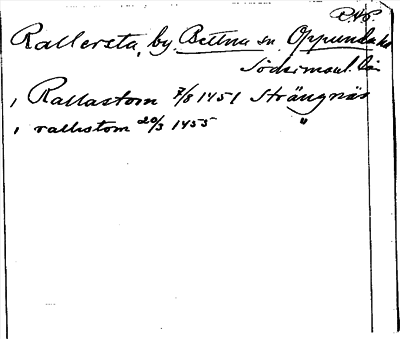 Rallersta, by Bettna sn Oppunda hd
Södermanl. län
1 Rallastom 7/8 1451 Strängnäs
1 rallistom 20/3 1455 "